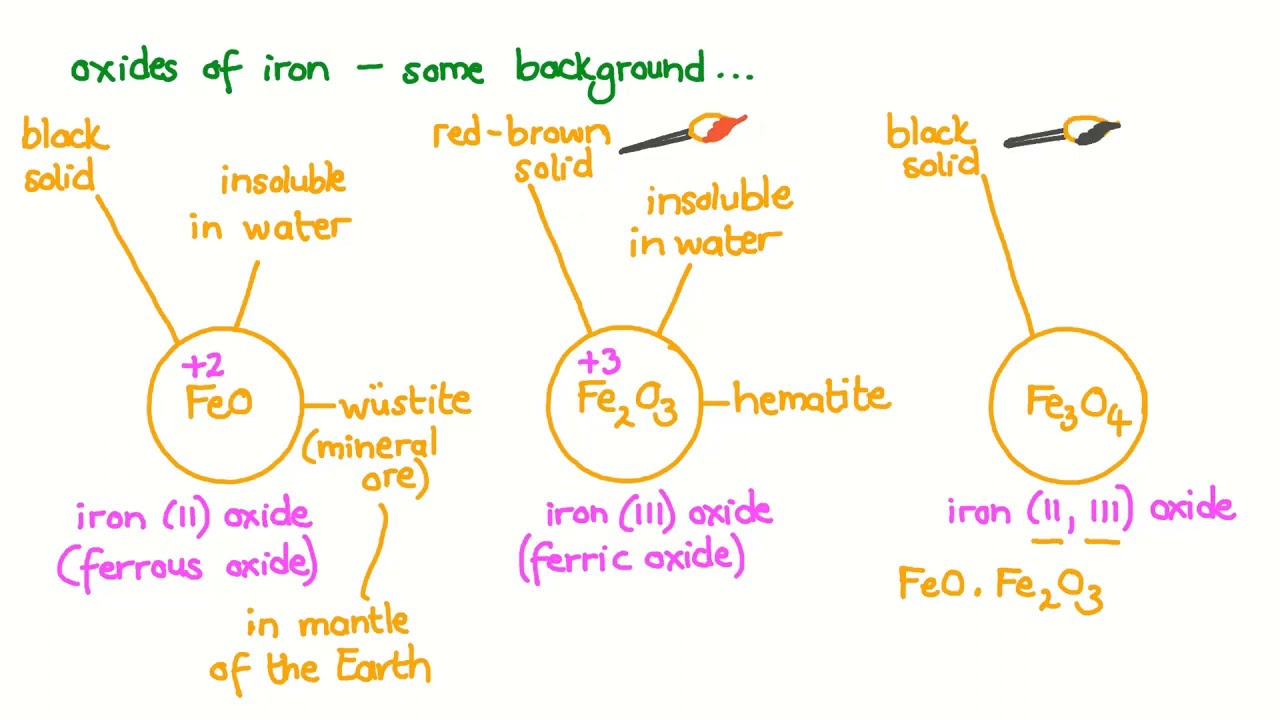 oxides of iron – some background...
black
solid
insoluble
in water
+2
FeO
wüstite
(mineral
ore)
iron (II) oxide
(ferrous oxide)
in mantle
of the Earth
red-brown
solid
insoluble
in water
+3
Fe₂O₃
hematite
iron (III) oxide
(ferric oxide)
black
solid
Fe₃O₄
iron (II, III) oxide
FeO . Fe₂O₃